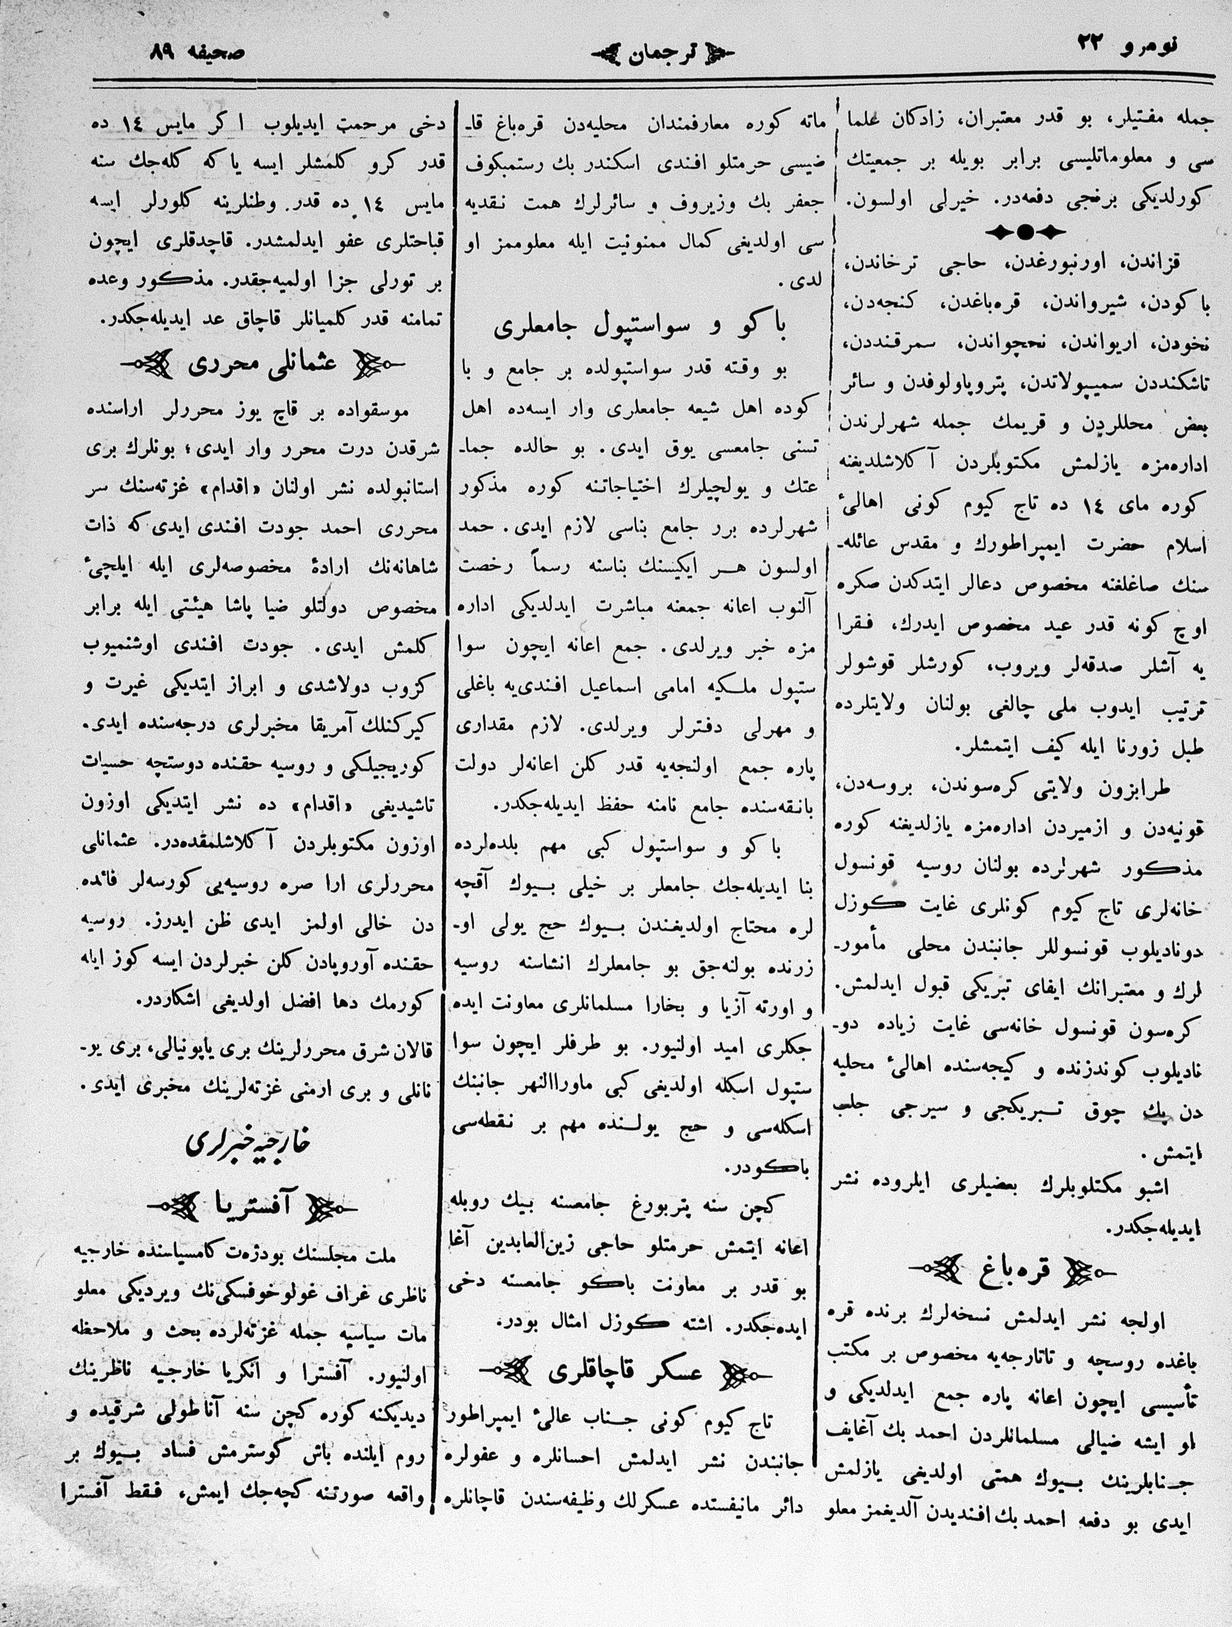 نومرو ٢٢
ترجمان
صحيفه ٨٩
جمله مفتيلر، بو قدر معتبران، زادكان علما
سى و معلوماتليسى برابر بويله بر جمعيتك
كورلديكى برنجى دفعه‌در. خيرلى اولسون.
قزاندن، اورنبورغدن، حاجى ترخاندن،
باكودن، شيرواندن، قره‌باغدن، كنجه‌دن،
نخودن، اريواندن، نخجواندن، سمرقنددن،
تاشكنددن سميپولاتدن، پتروپاولوفدن و سائر
بعض محللردن و قريمك جمله شهرلرندن
اداره‌مزه يازلمش مكتوبلردن آكلاشلديغنه
كوره ماى ١٤ ده تاج كيوم كونى اهالئ
اسلام حضرت ايمپراطورك و مقدس عائله‌ـ
سنك صاغلغنه مخصوص دعالر ايتدكدن صكره
اوچ كونه قدر عيد مخصوص ايدرك، فقرا
يه آشلر صدقه‌لر ويروب، كورشلر قوشولر
ترتيب ايدوب ملى چالغى بولنان ولايتلرده
طبل زورنا ايله كيف ايتمشلر.
طرابزون ولايتى كره‌سوندن، بروسه‌دن،
قونيه‌دن و ازميردن اداره‌مزه يازلديغنه كوره
مذكور شهرلرده بولنان روسيه قونسول
خانه‌لرى تاج كيوم كونلرى غايت كوزل
دوناديلوب قونسوللر جانبندن محلى مأمورـ
لرك و معتبرانك ايفاى تبريكى قبول ايدلمش.
كره‌سون قونسول خانه‌سى غايت زياده دوـ
ناديلوب كوندزنده و كيجه‌سنده اهالئ محليه
دن پك چوق تبريكجى و سيرجى جلب
ايتمش.
اشبو مكتلوبلرك بعضيلرى ايلروده نشر
ايديله‌جكدر.
قره‌باغ
اولجه نشر ايدلمش نسخه‌لرك برنده قره
باغده روسچه و تاتارجه‌يه مخصوص بر مكتب
تأسيسى ايچون اعانه پاره جمع ايدلديكى و
او ايشه ضيالى مسلمانلردن احمد بك آغايف
جنابلرينك بيوك همتى اولديغى يازلمش
ايدى بو دفعه احمد بك افنديدن آلديغمز معلو
ماته كوره معارفمندان محليه‌دن قره‌باغ قاـ
ضيسى حرمتلو افندى اسكندر بك رستمبكوف
جعفر بك وزيروف و سائرلرك همت نقديه
سى اولديغى كمال ممنونيت ايله معلوممز او
لدى.
باكو و سواستپول جامعلرى
بو وقته قدر سواستپولده بر جامع و با
كوده اهل شيعه جامعلرى وار ايسه‌ده اهل
تسنى جامعسى يوق ايدى. بو حالده جماـ
عتك و يولچيلرك اختياجاتنه كوره مذكور
شهرلرده برر جامع بناسى لازم ايدى. حمد
اولسون هر ايكيسنك بناسنه رسماً رخصت
آلنوب اعانه جمعنه مباشرت ايدلديكى اداره
مزه خبر ويرلدى. جمع اعانه ايچون سوا
ستپول ملكيه امامى اسماعيل افندى‌يه باغلى
و مهرلى دفترلر ويرلدى. لازم مقدارى
پاره جمع اولنجه‌يه قدر كلن اعانه‌لر دولت
بانقه‌سنده جامع نامنه حفظ ايديله‌جكدر.
باكو و سواستپول كبى مهم بلده‌لرده
بنا ايديله‌جك جامعلر بر خيلى بيوك آقچه
لره محتاج اولديغندن بيوك حج يولى اوـ
زرنده بولنه‌جق بو جامعلرك انشاسنه روسيه
و اورته آزيا و بخارا مسلمانلرى معاونت ايده
جكلرى اميد اولنيور. بو طرفلر ايچون سوا
ستپول اسكله اولديغى كبى ماورالنهر جانبنك
اسكله‌سى و حج يولنده مهم بر نقطه‌سى
باكودر.
كچن سنه پتربورغ جامعسنه بيك روبله
اعانه ايتمش حرمتلو حاجى زين‌العابدين آغا
بو قدر بر معاونت باكو جامعسنه دخى
ايده‌جكدر. اشته كوزل امثال بودر.
عسكر قاچاقلرى
تاج كيوم كونى جناب عالئ ايمپراطور
جانبندن نشر ايدلمش احسانلره و عفولره
دائر مانيفستده عسكرلك وظيفه‌سندن قاچانلره
دخى مرحمت ايديلوب اكر مايس ١٤ ده
قدر كرو كلمشلر ايسه ياكه كله‌جك سنه
مايس ١٤ ده قدر وطنلرينه كلورلر ايسه
قباحتلرى عفو ايدلمشدر. قاچدقلرى ايچون
بر تورلى جزا اولميه‌جقدر. مذكور وعده
تمامنه قدر كلميانلر قاچاق عد ايديله‌جكدر.
عثمانلى محررى
موسقواده بر قاچ يوز محررلر اراسنده
شرقدن درت محرر وار ايدى؛ بونلرك برى
استانبولده نشر اولنان «اقدام» غزته‌سنك سر
محررى احمد جودت افندى ايدى كه ذات
شاهانه‌نك ارادۀ مخصوصه‌لرى ايله ايلچئ
مخصوص دولتلو ضيا پاشا هيئتى ايله برابر
كلمش ايدى. جودت افندى اوشنميوب
كزوب دولاشدى و ابراز ايتديكى غيرت و
كيركنلك آمريقا مخبرلرى درجه‌سنده ايدى.
كوريجيلكى و روسيه حقنده دوستچه حسيات
تاشيديغى «اقدام» ده نشر ايتديكى اوزون
اوزون مكتوبلردن آكلاشلمقده‌در. عثمانلى
محررلرى ارا صره روسيه‌يى كورسه‌لر فائده
دن خالى اولمز ايدى ظن ايدرز. روسيه
حقنده آوروپادن كلن خبرلردن ايسه كوز ايله
كورمك دها افضل اولديغى اشكاردر.
قالان شرق محررلرينك برى ياپونيالى، برى يوـ
نانلى و برى ارمنى غزته‌لرينك مخبرى ايدى.
خارجيه خبرلرى
آفستريا
ملت مجلسنك بودژه‌ت كامسياسنده خارجيه
ناظرى غراف غولوخوفسكى‌نك ويرديكى معلو
مات سياسيه جمله غزته‌لرده بحث و ملاحظه
اولنيور. آفسترا و انكريا خارجيه ناظرينك
ديديكنه كوره كچن سنه آناطولى شرقيده و
روم ايلنده باش كوسترمش فساد بيوك بر
واقعه صورتنه كچه‌جك ايمش، فقط آفسترا